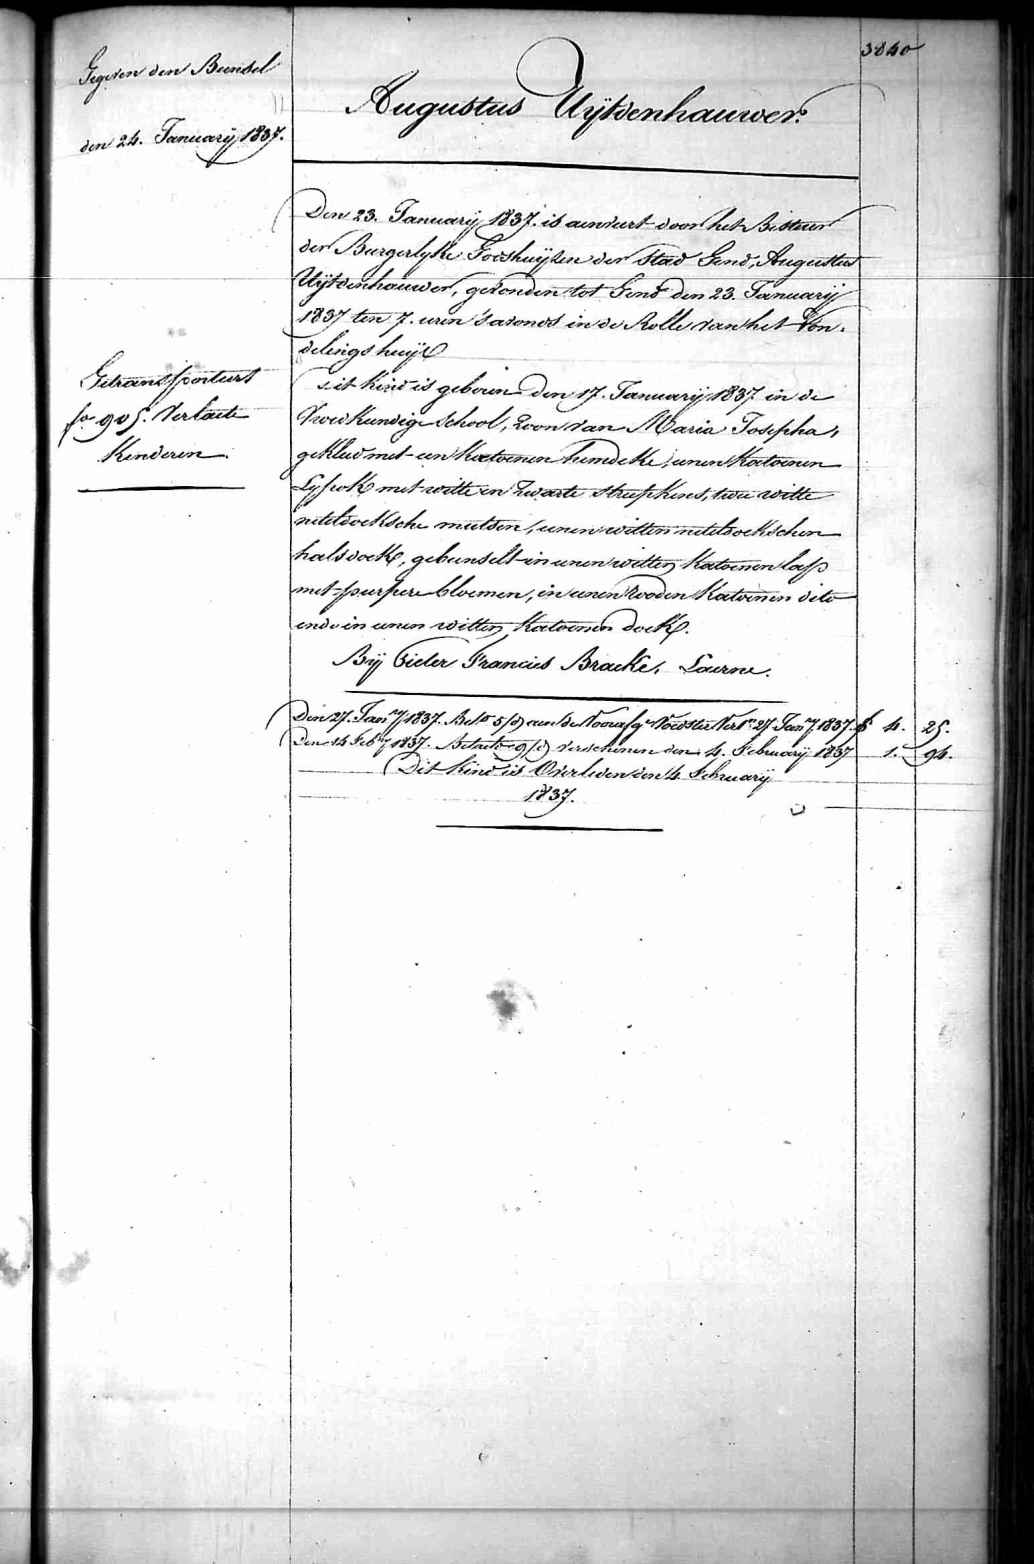 3840
Gegeven den Bunsel
den 24. January 1837.
Augustus Uijtdenhauwer.
Den 23. January 1837. is aenveert door het Bestuer
der Burgerlyke Godshuijzen der Stad Gend, Augustus
Uijtdenhauwer, gevonden tot Gend den 23. January
1837 ten 7. uren 's avonds in de Rolle van het Von-
delingshuijs
Getransporteert
fo 905. Verlaete
Kinderen.
dit kind is geboren den 17. January 1837 in de
Vroedkundige School, Zoon van Maria Josepha,
gekleed met een katoenen hemdeke, eenen katoenen
Lyfrok met witte en zwarte streepkens, twee witte
neteldoeksche mutsen, eenen witten neteldoekschen
halsdoek, gebunselt in eenen witten katoenen lap
met purpere bloemen, in eenen rooden katoenen dito
ende in eenen witten katoenen doek.
Bij Pieter Francies Bracke. Laerne.
Den 27. Jan.ry 1837. Bet. 5/9 aen de Voedster Vert. 27 Jan.y 1837. 4. 25.
Den 14 Feb.ry 1837. Betaelt 9/9 verschenen den 4. February 1837 1. 94.
Dit kind is Overleden den 4 February
1837.